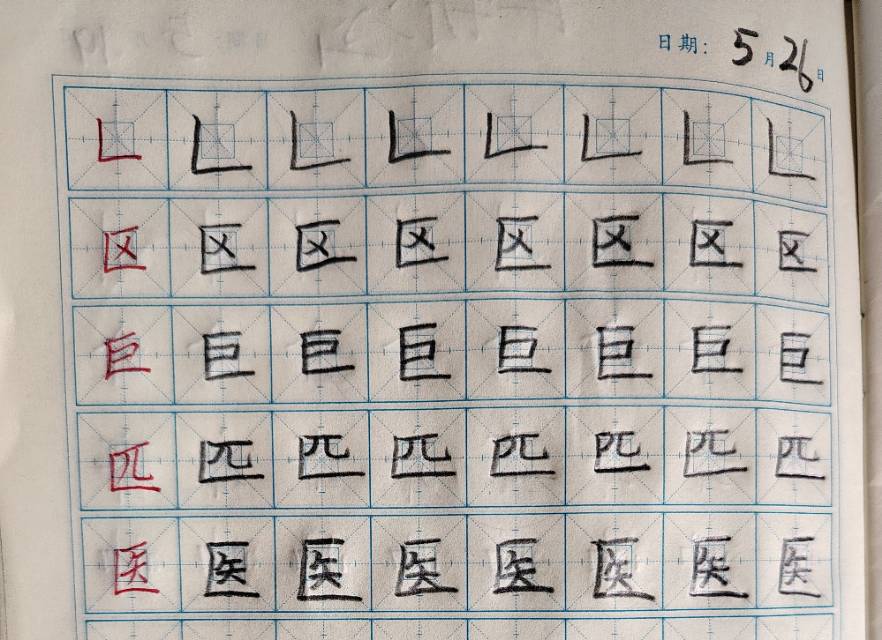 日期: 5月26日
𠃊 𠃊 𠃊 𠃊 𠃊 𠃊 𠃊 𠃊
区 区 区 区 区 区 区 区
巨 巨 巨 巨 巨 巨 巨 巨
匹 匹 匹 匹 匹 匹 匹 匹
医 医 医 医 医 医 医 医